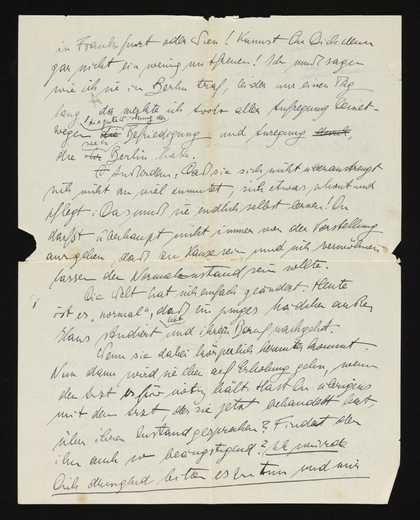 in Frankfurt oder Wien! Kannst Du Dich denn
gar nicht ein wenig mitfreuen! Ich muß sagen
wie ich sie in Berlin traf, leider nur einen Tag
lang, da merkte ich trotz aller Aufregung
wegen Befriedigung und Anregung
die sie Berlin habe.
Außerdem, Daß sie sich nicht überanstrengt
sich nicht zu viel zumutet, sich etwas schont und
pflegt: Das muß sie endlich selbst lernen! Du
darfst überhaupt nicht immer von der Vorstellung
ausgehen, daß zu Hause sein und sich verwöhnen
lassen der Normalzustand sein sollte.
Die Welt hat sich einfach geändert. Heute
ist es "normal", daß ein junges Mädchen außer
Haus studiert und ihrem Beruf nachgeht.
Wenn sie dabei körperlich herunter kommt.
Nun dann wird sie eben auf Erholung gehn, wenn
der Arzt es für nötig hält. Hast Du übrigens
mit dem Arzt der sie jetzt behandelt hat,
über ihren Zustand gesprochen? Findet der
ihn auch so beängstigend? Ich würde
Dich dringend bitten es zu tun und mir